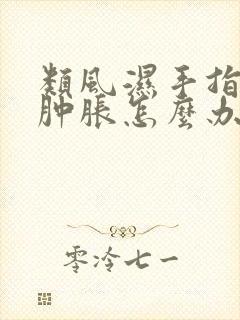 類風濕手指
肿脹怎麼办
零泠七一